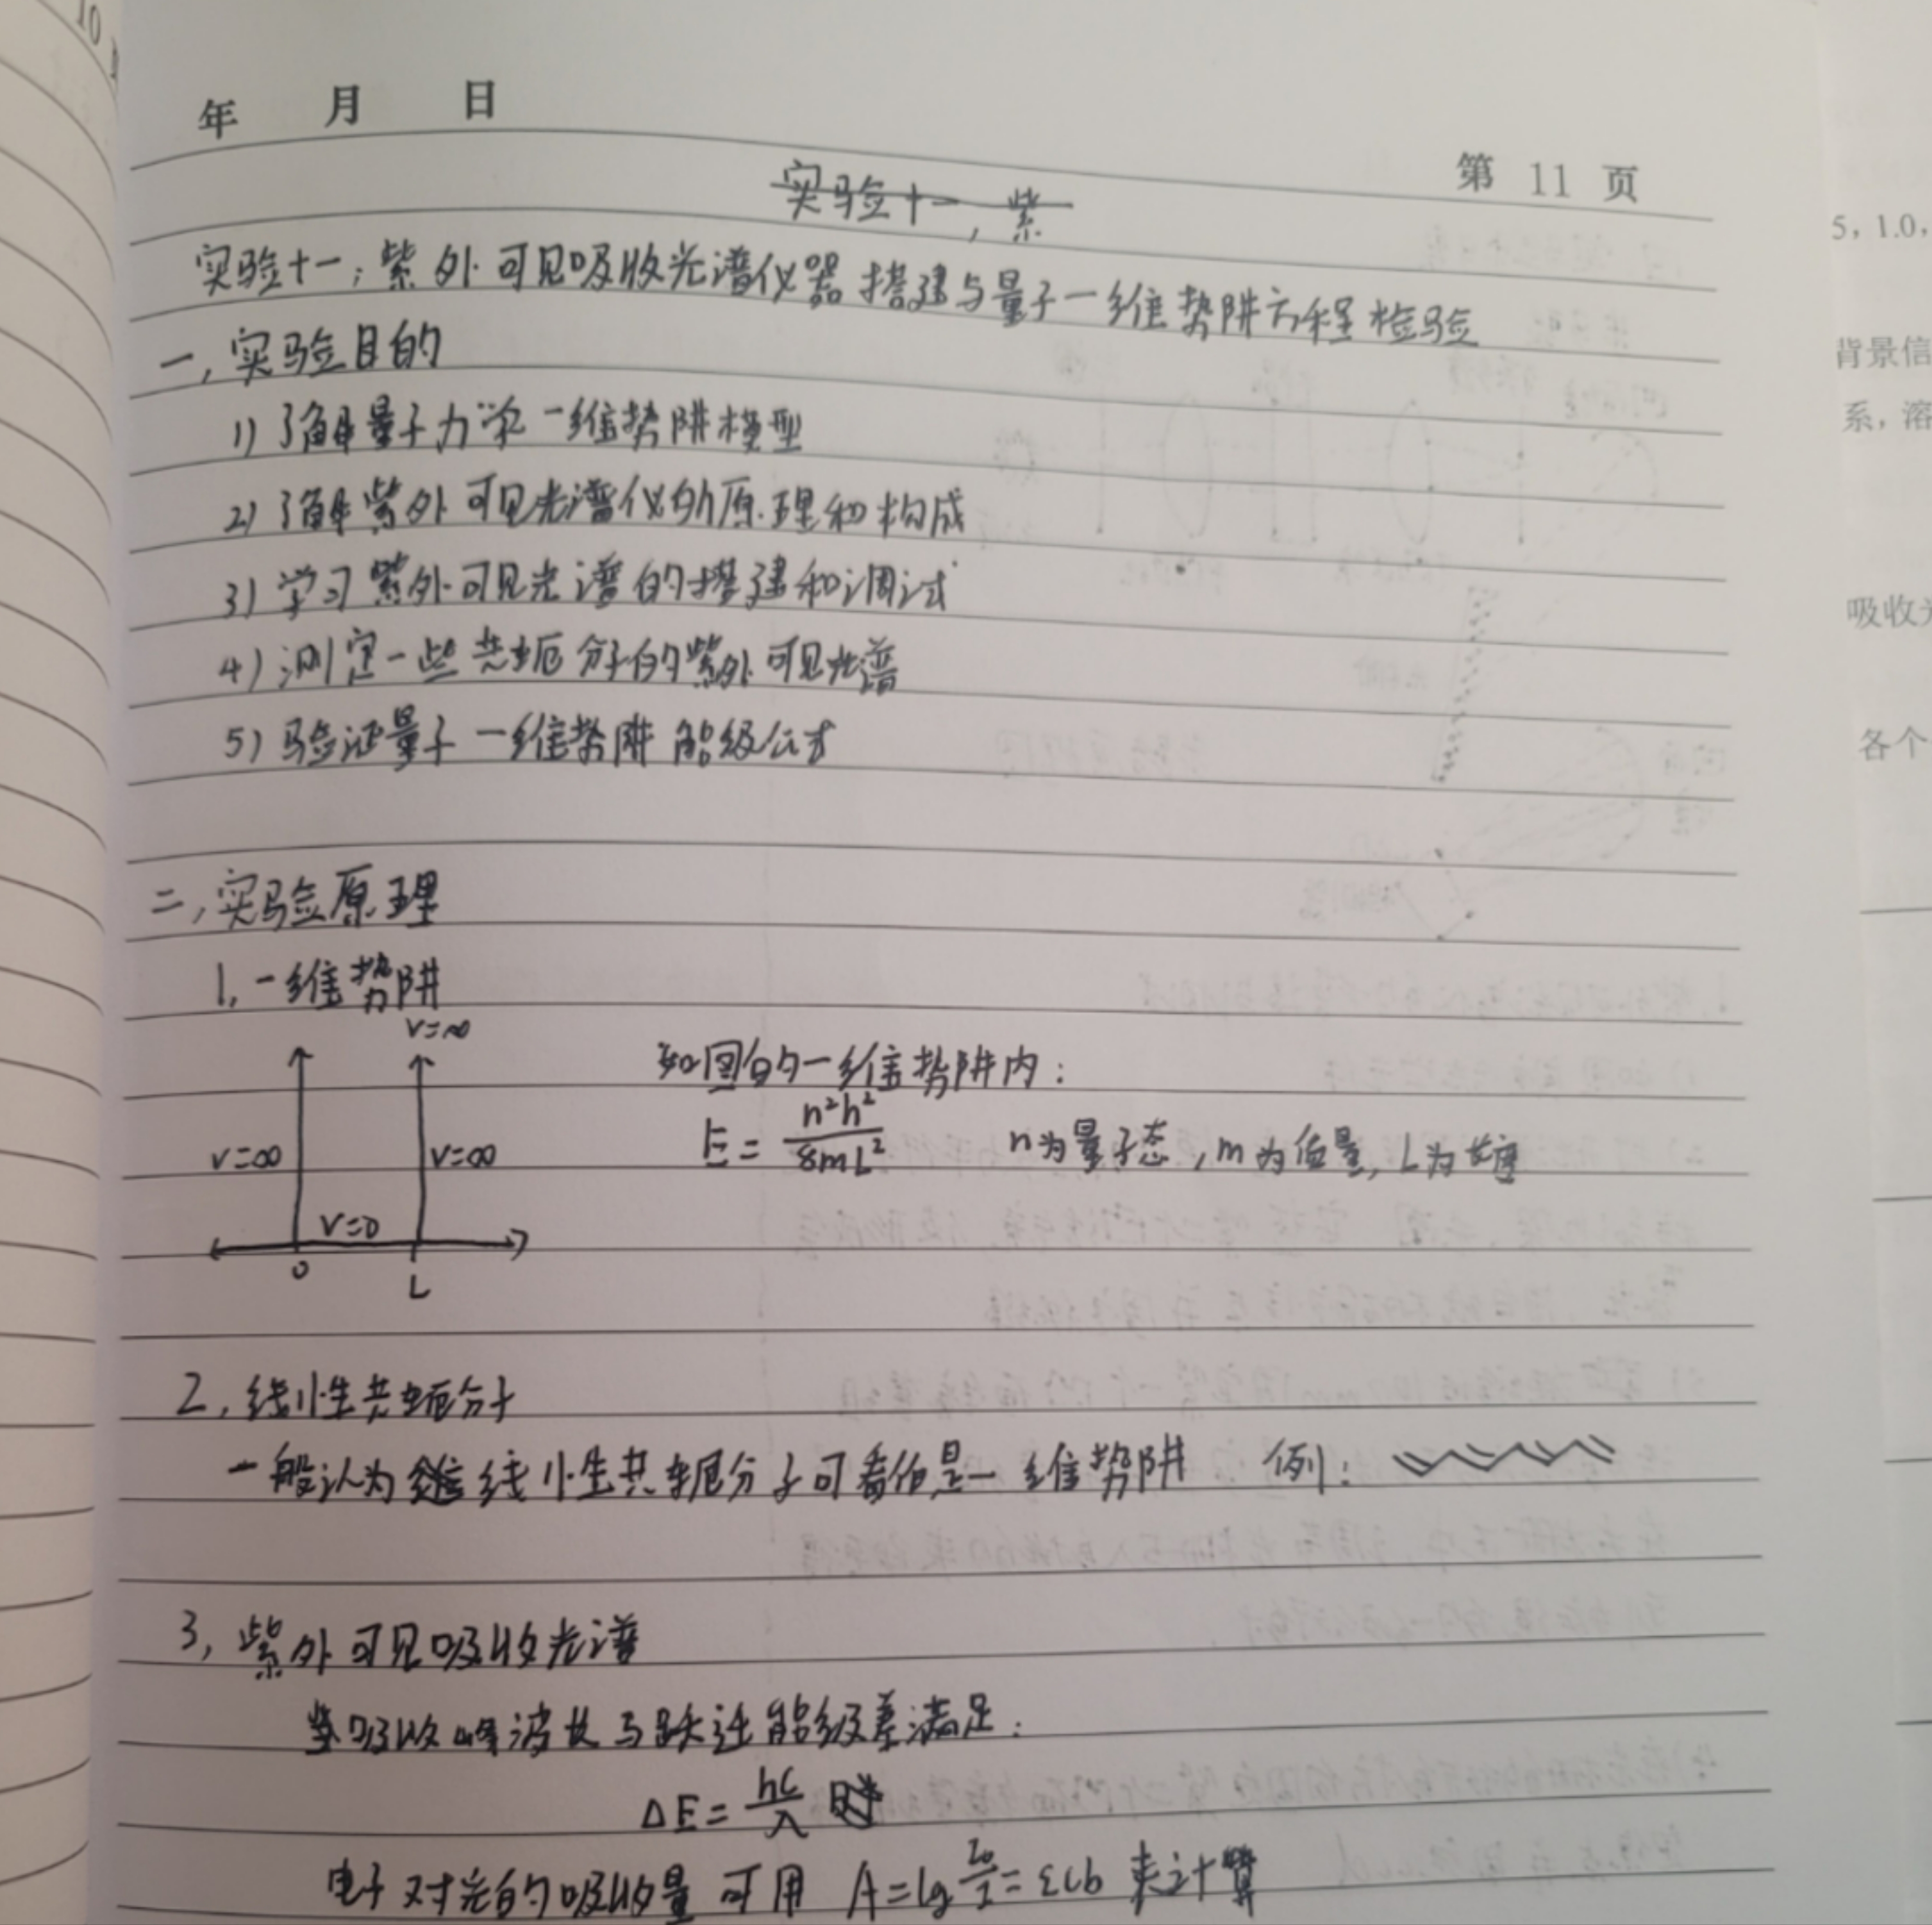 年 月 日
第 11 页
实验十一，紫
实验十一：紫外可见吸收光谱仪器搭建与量子一维势阱方程检验
一，实验目的
1）了解量子力学一维势阱模型
2）了解紫外可见光谱仪的原理和构成
3）学习紫外可见光谱的搭建和调试
4）测定一些共轭分子的紫外可见光谱
5）验证量子一维势阱能级公式
二，实验原理
1，一维势阱
V=∞
如图的一维势阱内：
E = n²h²/8mL² n为量子态，m为质量，L为长度
V=∞ V=∞
V=0
0 L
2，线性共轭分子
一般认为线性共轭分子可看作是一维势阱 例：
3，紫外可见吸收光谱
当吸收峰波长与跃迁能级差满足：
ΔE = hc/λ 时
电子对光的吸收量可用 A=lg I₀/I = εcb 来计算
10
5，1.0，
背景信
系，溶
吸收光
各个